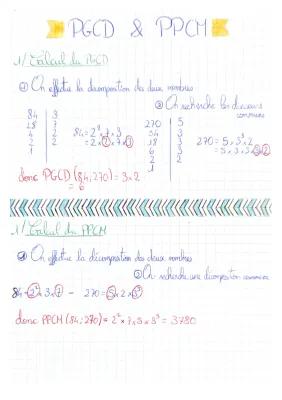 PGCD & PPCM
1/ Calcul du PGCD
① On effectue la décomposition des deux nombres
② On recherche les diviseurs communs
84 3
28 7
4 2
2 2
1
84 = 2² x 7 x 3
= 2 x 2 x 7 x 3
270 5
54 3
18 3
6 3
2 2
1
270 = 5 x 3³ x 2
= 5 x 3 x 3 x 3 x 2
donc PGCD (84; 270) = 3 x 2
= 6
1/ Calcul du PPCM
① On effectue la décomposition des deux nombres
② On recherche une décomposition commune
84 = 2² x 3 x 7 - 270 = 5 x 2 x 3³
donc PPCM (84; 270) = 2² x 7 x 5 x 3³ = 3780